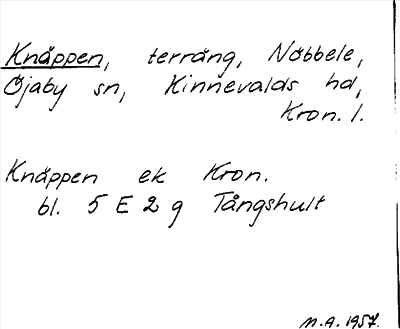 Knäppen, terräng, Nöbbele,
Öjaby sn, Kinnevalds hd,
Kron. l.
Knäppen ek Kron.
bl. 5 E 2 g Tångshult
M.A. 1957.